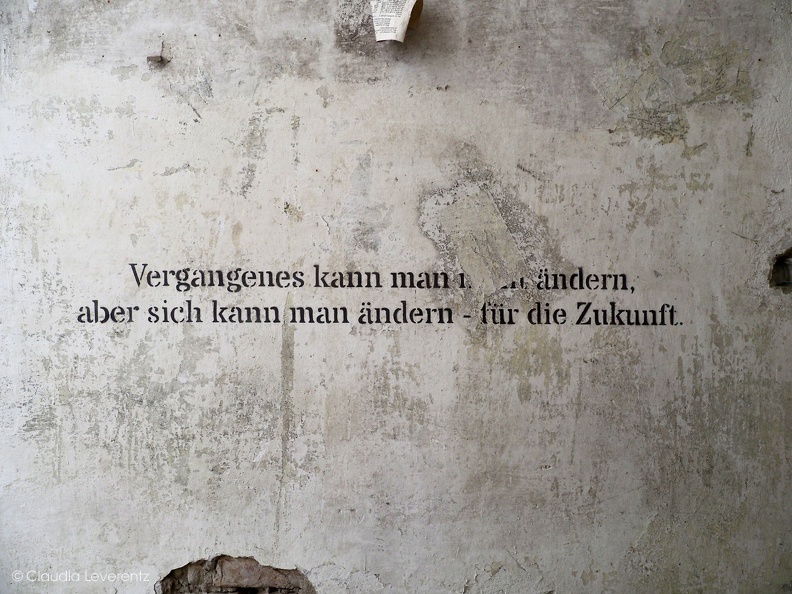 Vergangenes kann man ändern,
aber sich kann man ändern - für die Zukunft.
© Claudia Leverentz